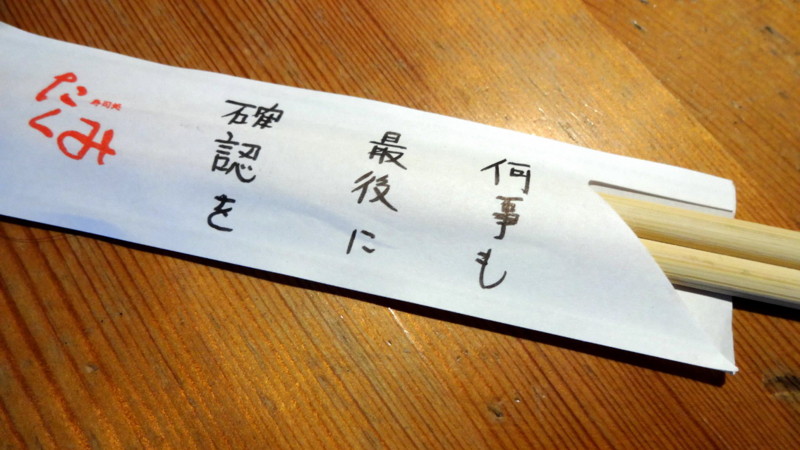 何事も
最後に
確認を
寿司処
たくみ